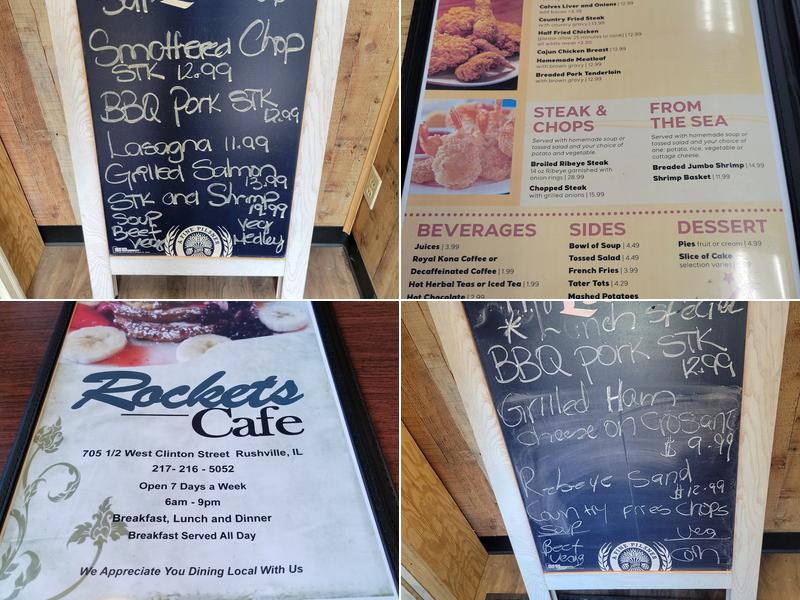 Smothered Chop
STK 12.99
BBQ Pork STK
12.99
Lasagna 11.99
Grilled Salmon
13.99
STK and Shrimp
19.99
Soup
Veg
Beef
Medley
Veg
Calves Liver and Onions | 12.99
add bacon +3.39
Country Fried Steak
with country gravy | 13.99
Half Fried Chicken
(please allow 25 minutes to cook) | 12.99
all white meat +3.50
Cajun Chicken Breast | 13.99
Homemade Meatloaf
with brown gravy | 12.99
Breaded Pork Tenderloin
with brown gravy | 12.99
STEAK &
CHOPS
Served with homemade soup or
tossed salad and your choice of
potato and vegetable.
Broiled Ribeye Steak
14 oz Ribeye garnished with
onion rings | 28.99
Chopped Steak
with grilled onions | 15.99
FROM
THE SEA
Served with homemade soup or
tossed salad and your choice of
one: potato, rice, vegetable or
cottage cheese.
Breaded Jumbo Shrimp | 14.99
Shrimp Basket | 11.99
BEVERAGES
Juices | 3.99
Royal Kona Coffee or
Decaffeinated Coffee | 1.99
Hot Herbal Teas or Iced Tea | 1.99
Hot Chocolate | 2.99
SIDES
Bowl of Soup | 4.49
Tossed Salad | 4.49
French Fries | 3.99
Tater Tots | 4.29
Mashed Potatoes
DESSERT
Pies fruit or cream | 4.99
Slice of Cake
selection varies
Rockets
Cafe
705 1/2 West Clinton Street Rushville, IL
217- 216 - 5052
Open 7 Days a Week
6am - 9pm
Breakfast, Lunch and Dinner
Breakfast Served All Day
We Appreciate You Dining Local With Us
* Lunch Special
BBQ Pork STK
12.99
Grilled Ham
cheese on Crosant
$ 9.99
Ribeye Sand
$12.99
Country Fries Chops
Soup
Veg
Beef
Veg
Corn
A FINE PILSNER